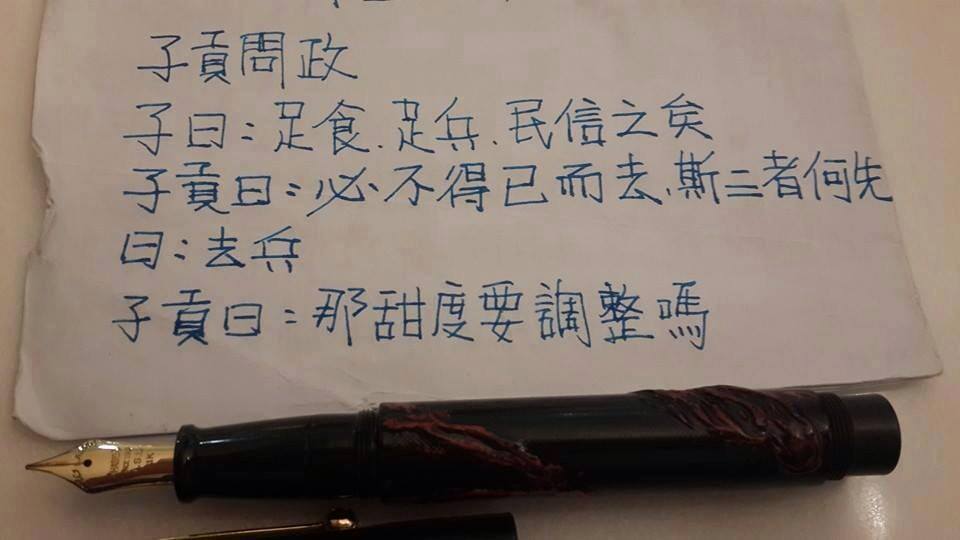 子貢問政
子曰：足食、足兵、民信之矣
子貢曰：必不得已而去、斯二者何先
曰：去兵
子貢曰：那甜度要調整嗎